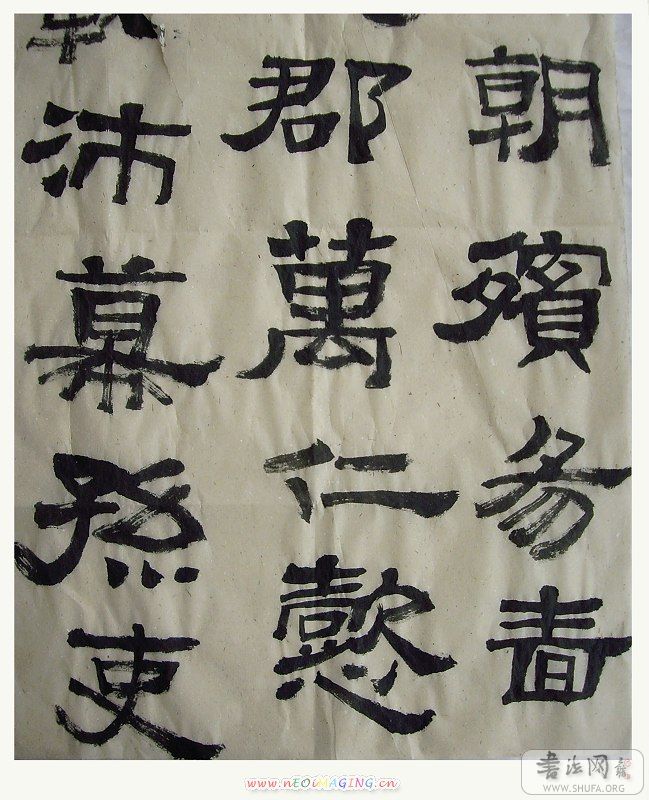 朝殯
郡萬仁懿
沛幕孫吏
www.nEOiMAGING.cn
书法网
WWW.SHUFA.ORG